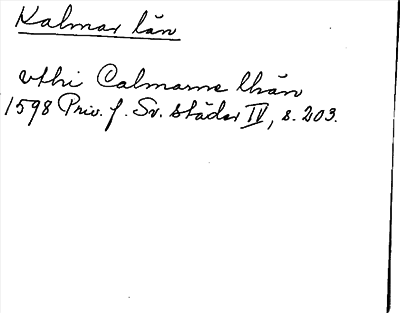 Kalmar län
vthi Calmarne lhän
1598 Priv. f. Sv. städer IV, s. 203.